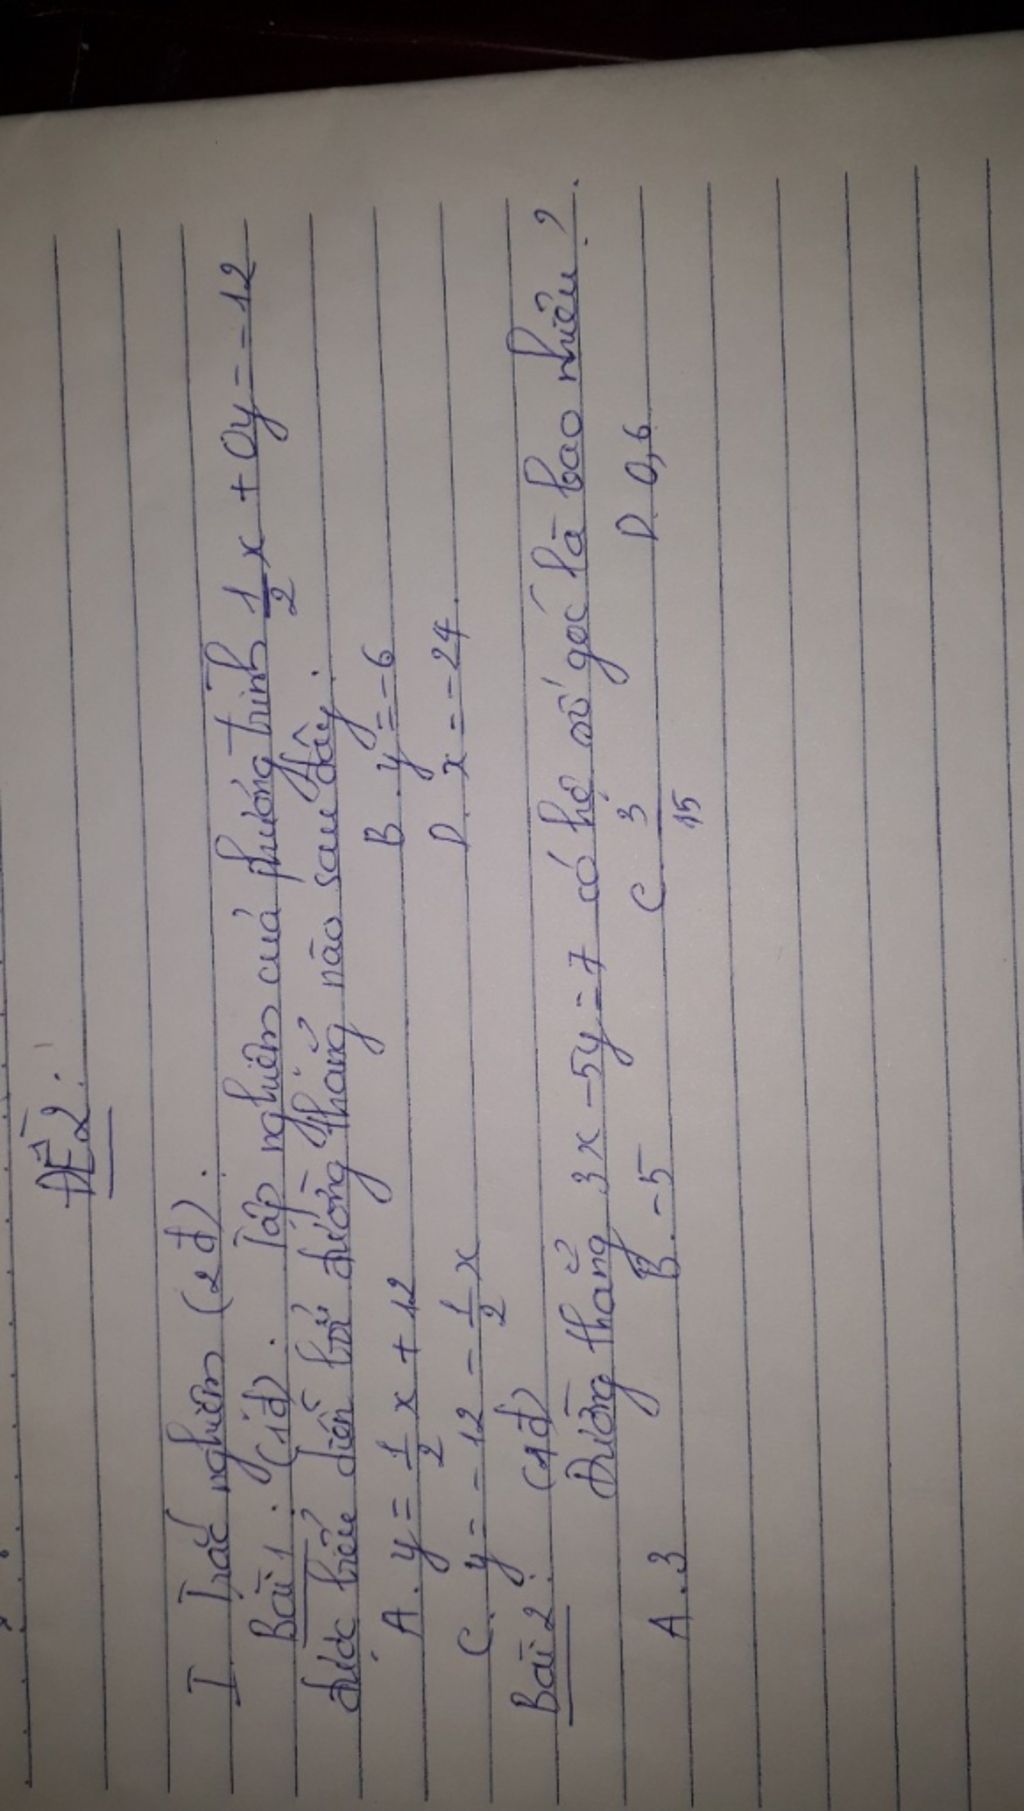 ĐỀ 2:
I Trắc nghiệm (2đ).
Bài 1. (1đ). Tập nghiệm của phương trình 1/2 x + 0y = -12
được biểu diễn bởi đường thẳng nào sau đây.
A. y = 1/2 x + 12 B. y = -6
C. y = -12 - 1/2 x D. x = -24.
Bài 2: (1đ)
Đường thẳng 3x - 5y = 7 có hệ số góc là bao nhiêu?
A. 3 B. -5 C. 3/15 D. 0,6